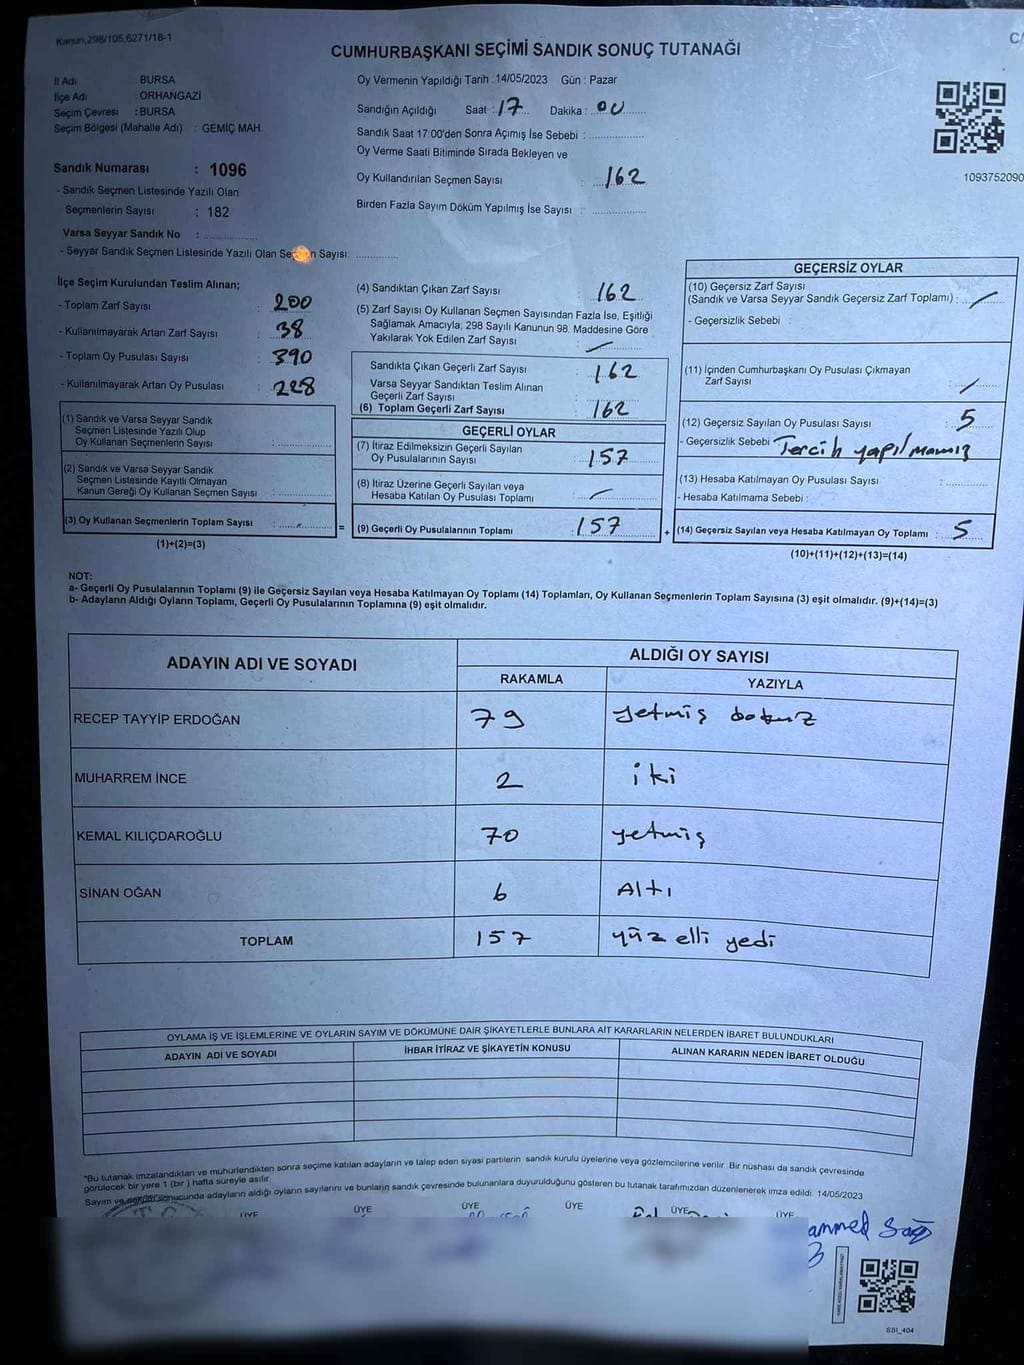 Kanun,298/105,6271/18-1
C/
CUMHURBAŞKANI SEÇİMİ SANDIK SONUÇ TUTANAĞI
İl Adı : BURSA
İlçe Adı : ORHANGAZİ
Seçim Çevresi : BURSA
Seçim Bölgesi (Mahalle Adı) : GEMİÇ MAH.
Sandık Numarası : 1096
- Sandık Seçmen Listesinde Yazılı Olan
Seçmenlerin Sayısı : 182
Varsa Seyyar Sandık No :
- Seyyar Sandık Seçmen Listesinde Yazılı Olan Seçmen Sayısı:
Oy Vermenin Yapıldığı Tarih :14/05/2023 Gün : Pazar
Sandığın Açıldığı Saat : 17 Dakika : 00
Sandık Saat 17:00'den Sonra Açımış İse Sebebi :
Oy Verme Saati Bitiminde Sırada Bekleyen ve
Oy Kullandırılan Seçmen Sayısı : 162
Birden Fazla Sayım Döküm Yapılmış İse Sayısı :
1093752090
İlçe Seçim Kurulundan Teslim Alınan;
- Toplam Zarf Sayısı : 200
- Kullanılmayarak Artan Zarf Sayısı : 38
- Toplam Oy Pusulası Sayısı : 390
- Kullanılmayarak Artan Oy Pusulası : 228
(1) Sandık ve Varsa Seyyar Sandık
Seçmen Listesinde Yazılı Olup
Oy Kullanan Seçmenlerin Sayısı :
(2) Sandık ve Varsa Seyyar Sandık
Seçmen Listesinde Kayıtlı Olmayan
Kanun Gereği Oy Kullanan Seçmen Sayısı :
(3) Oy Kullanan Seçmenlerin Toplam Sayısı :
(1)+(2)=(3)
(4) Sandıktan Çıkan Zarf Sayısı : 162
(5) Zarf Sayısı Oy Kullanan Seçmen Sayısından Fazla İse, Eşitliği
Sağlamak Amacıyla, 298 Sayılı Kanunun 98. Maddesine Göre
Yakılarak Yok Edilen Zarf Sayısı : —
Sandıkta Çıkan Geçerli Zarf Sayısı : 162
Varsa Seyyar Sandıktan Teslim Alınan
Geçerli Zarf Sayısı :
(6) Toplam Geçerli Zarf Sayısı : 162
GEÇERLİ OYLAR
(7) İtiraz Edilmeksizin Geçerli Sayılan
Oy Pusulalarının Sayısı : 157
(8) İtiraz Üzerine Geçerli Sayılan veya
Hesaba Katılan Oy Pusulası Toplamı : —
= (9) Geçerli Oy Pusulalarının Toplamı : 157
GEÇERSİZ OYLAR
(10) Geçersiz Zarf Sayısı
(Sandık ve Varsa Seyyar Sandık Geçersiz Zarf Toplamı) : —
- Geçersizlik Sebebi :
(11) İçinden Cumhurbaşkanı Oy Pusulası Çıkmayan
Zarf Sayısı : —
(12) Geçersiz Sayılan Oy Pusulası Sayısı : 5
- Geçersizlik Sebebi : Tercih yapılmamış
(13) Hesaba Katılmayan Oy Pusulası Sayısı :
- Hesaba Katılmama Sebebi :
+ (14) Geçersiz Sayılan veya Hesaba Katılmayan Oy Toplamı : 5
(10)+(11)+(12)+(13)=(14)
NOT:
a- Geçerli Oy Pusulalarının Toplamı (9) ile Geçersiz Sayılan veya Hesaba Katılmayan Oy Toplamı (14) Toplamları, Oy Kullanan Seçmenlerin Toplam Sayısına (3) eşit olmalıdır. (9)+(14)=(3)
b- Adayların Aldığı Oyların Toplamı, Geçerli Oy Pusulalarının Toplamına (9) eşit olmalıdır.
ADAYIN ADI VE SOYADI ALDIĞI OY SAYISI
RAKAMLA YAZIYLA
RECEP TAYYİP ERDOĞAN 79 yetmiş dokuz
MUHARREM İNCE 2 iki
KEMAL KILIÇDAROĞLU 70 yetmiş
SİNAN OĞAN 6 Altı
TOPLAM 157 yüz elli yedi
OYLAMA İŞ VE İŞLEMLERİNE VE OYLARIN SAYIM VE DÖKÜMÜNE DAİR ŞİKAYETLERLE BUNLARA AİT KARARLARIN NELERDEN İBARET BULUNDUKLARI
ADAYIN ADI VE SOYADI İHBAR İTİRAZ VE ŞİKAYETİN KONUSU ALINAN KARARIN NEDEN İBARET OLDUĞU
*Bu tutanak imzalandıktan ve mühürlendikten sonra seçime katılan adayların ve talep eden siyasi partilerin sandık kurulu üyelerine veya gözlemcilerine verilir. Bir nüshası da sandık çevresinde
görülecek bir yere 1 (bir ) hafta süreyle asılır.
Sayım ve döküm sonucunda adayların aldığı oyların sayılarını ve bunların sandık çevresinde bulunanlara duyurulduğunu gösteren bu tutanak tarafımızdan düzenlenerek imza edildi. 14/05/2023
ÜYE ÜYE ÜYE ÜYE ÜYE ÜYE
ammed Sağ
SSI_404